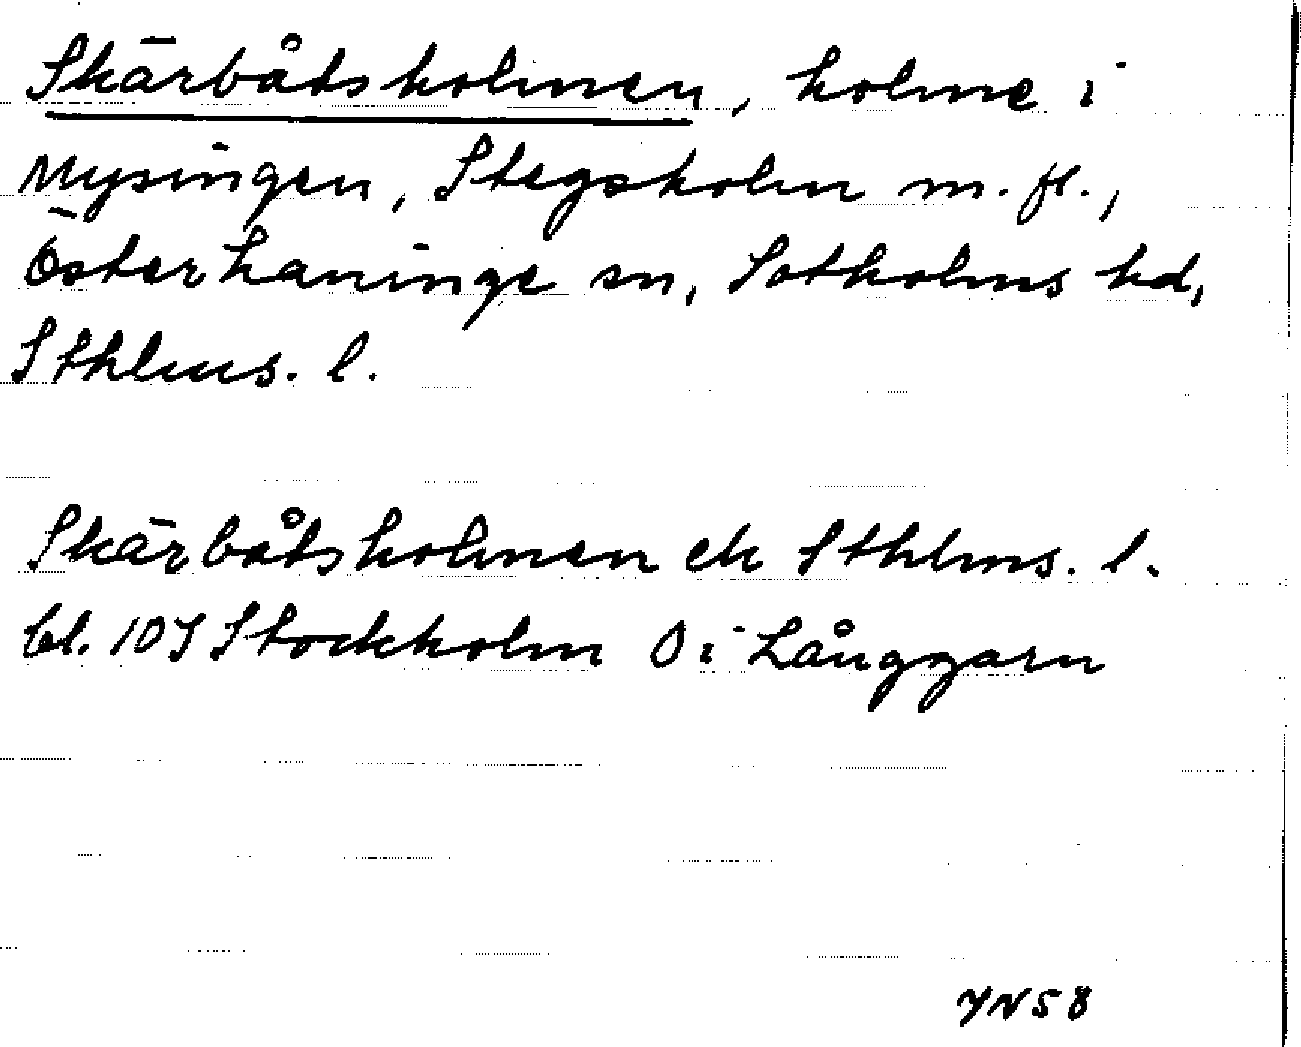 Skärbåtsholmen, holme i
Mysingen, Stegsholm m.fl.,
Österhaninge sn, Sotholms hd,
Sthlms. l.
Skärbåtsholmen ek Sthlms. l.
bl. 10J Stockholm O i Långgarn
YN58